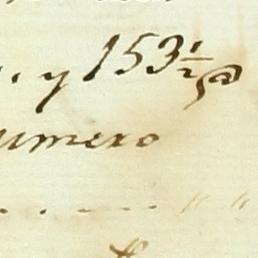 y 153 1/2 @
umero
" "